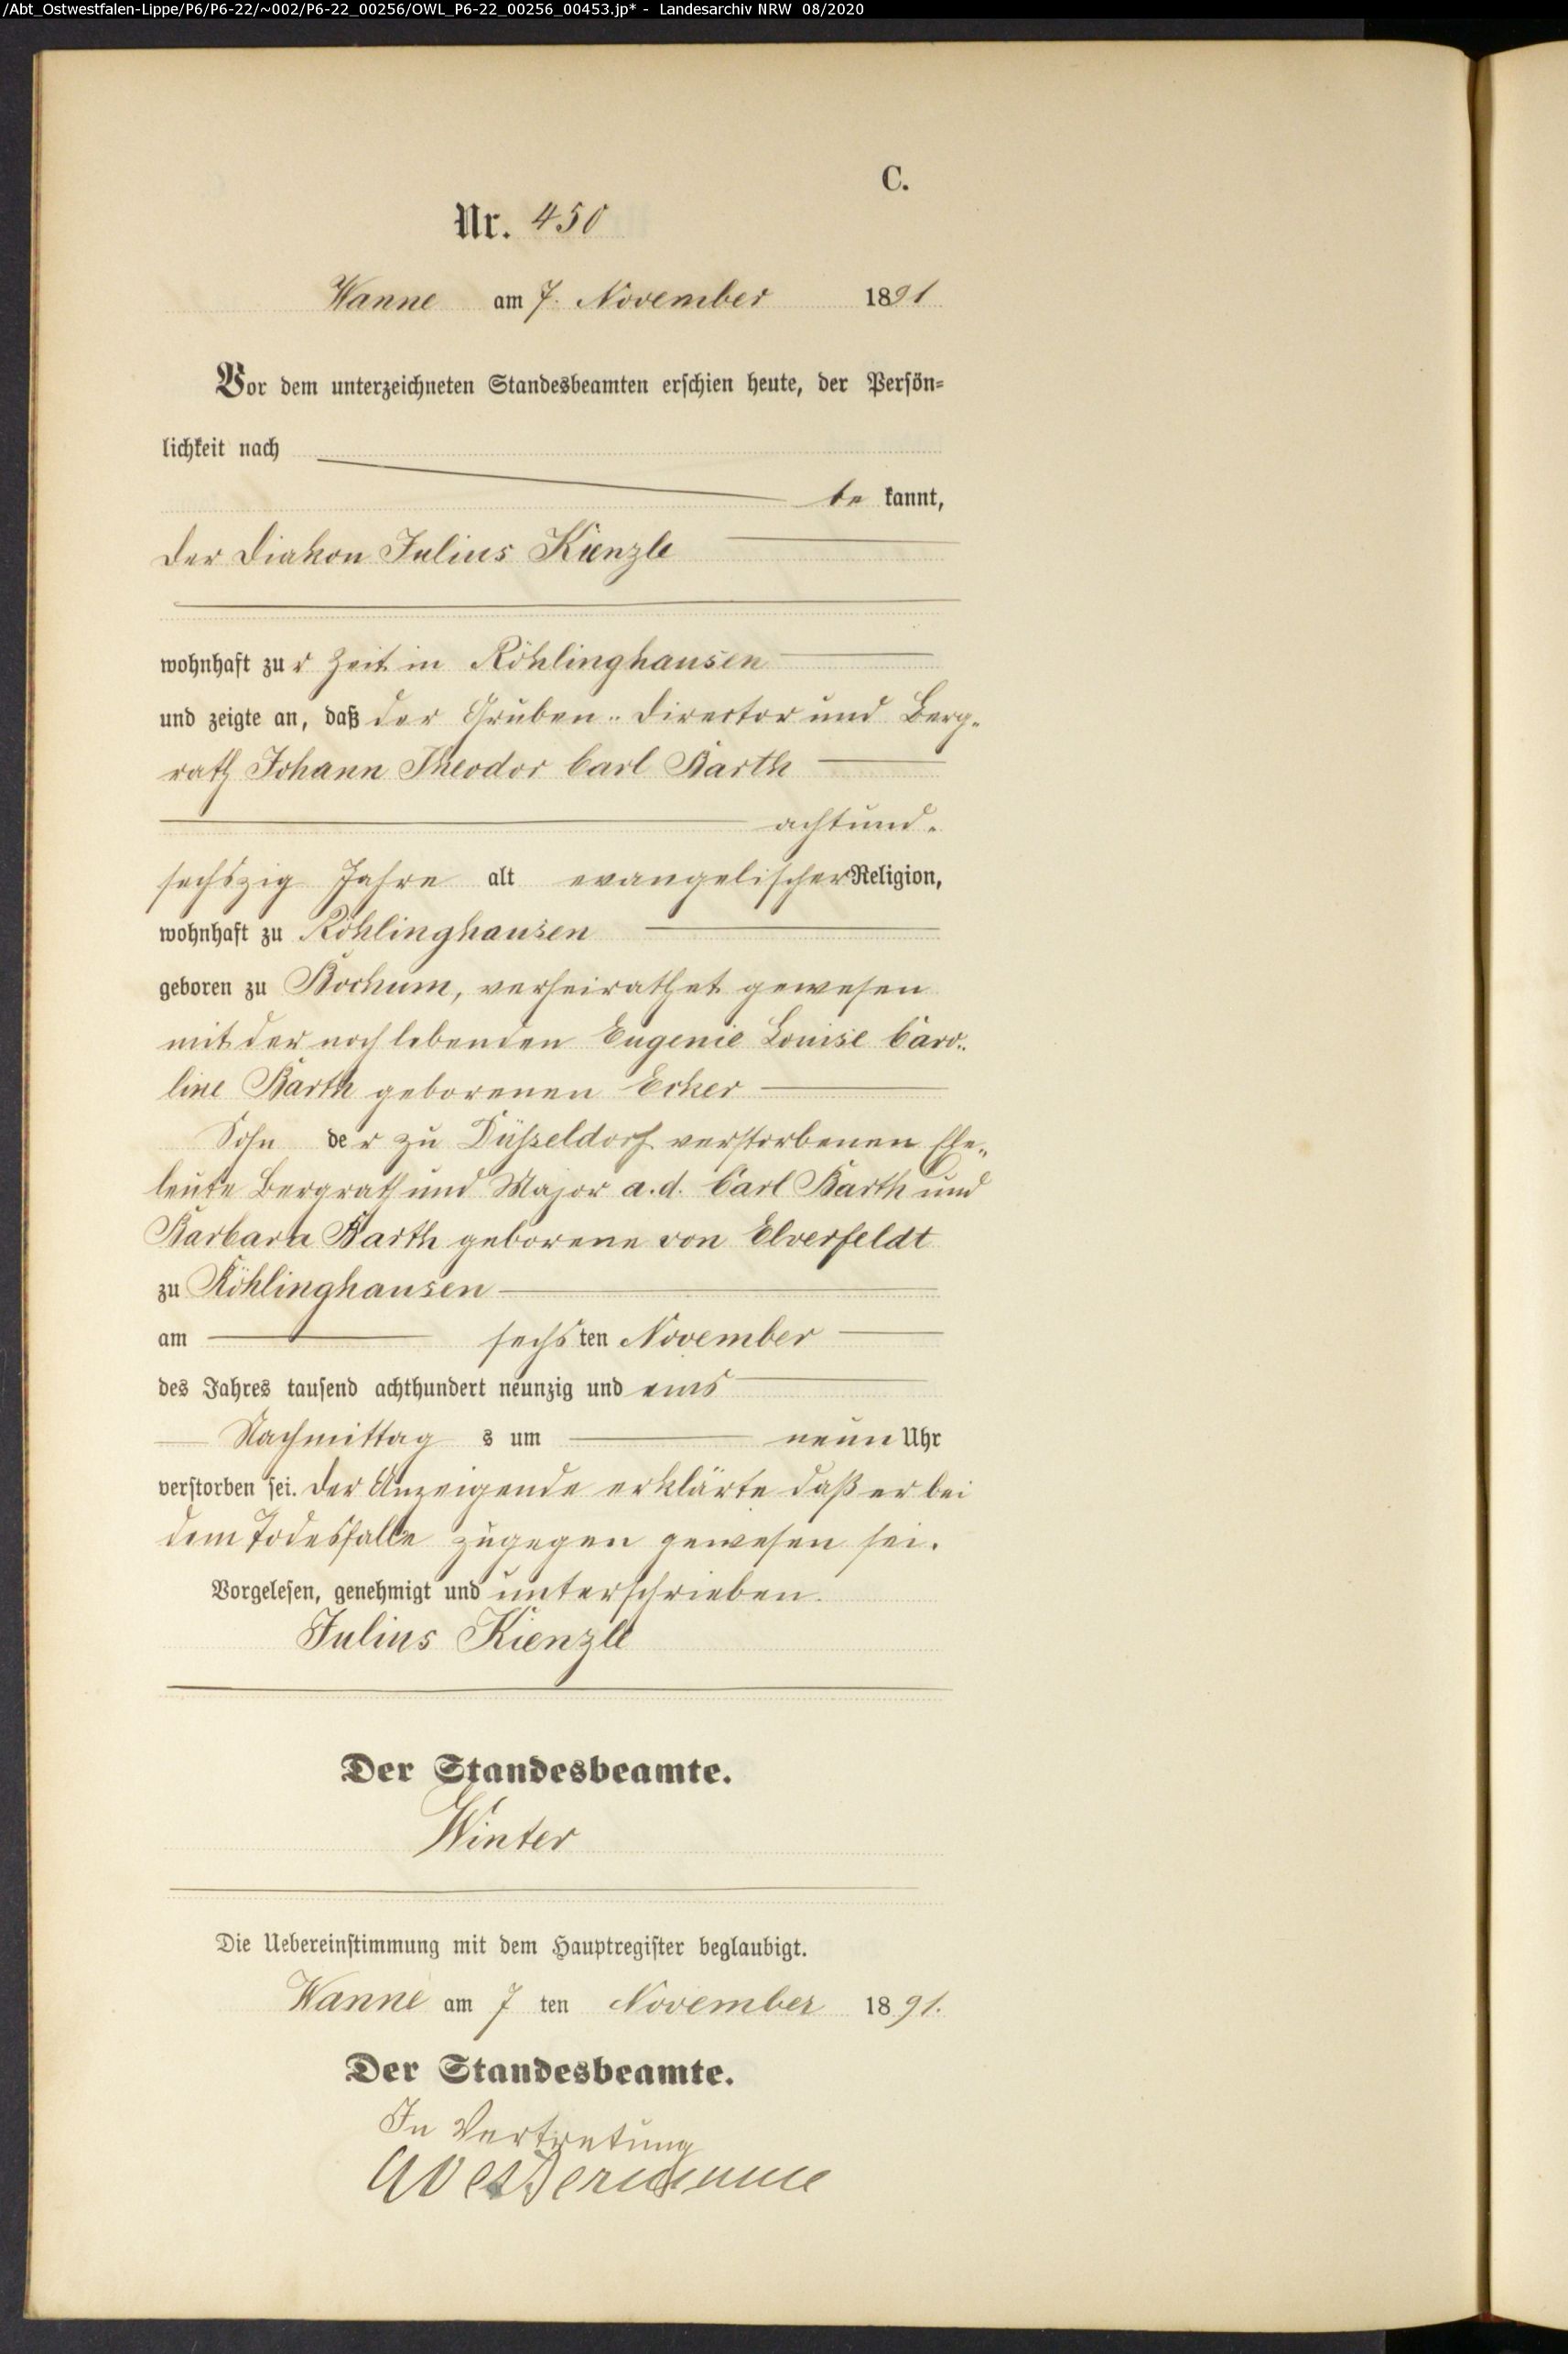 /Abt_Ostwestfalen-Lippe/P6/P6-22/~002/P6-22_00256/OWL_P6-22_00256_00453.jp* - Landesarchiv NRW 08/2020
C.
Nr. 450
Wanne am 7. November 1891
Vor dem unterzeichneten Standesbeamten erschien heute, der Persön-
lichkeit nach
be kannt,
der Diakon Julius Kienzle
wohnhaft zur Zeit in Röhlinghausen
und zeigte an, daß der Gruben-Director und Berg-
rath Johann Theodor Carl Barth
achtund-
sechszig Jahre alt evangelischer Religion,
wohnhaft zu Röhlinghausen
geboren zu Bochum, verheirathet gewesen
mit der noch lebenden Eugenie Louise Caro-
line Barth geborenen Ecker
Sohn der zu Düsseldorf verstorbenen Ehe-
leute Bergrath und Major a.d. Carl Barth und
Barbara Barth geborene von Elverfeldt
zu Röhlinghausen
am sechsten November
des Jahres tausend achthundert neunzig und eins
Nachmittag s um neun Uhr
verstorben sei. Der Anzeigende erklärte daß er bei
dem Todesfalle zugegen gewesen sei.
Vorgelesen, genehmigt und unterschrieben.
Julius Kienzle
Der Standesbeamte.
Winter
Die Uebereinstimmung mit dem Hauptregister beglaubigt.
Wanne am 7 ten November 1891.
Der Standesbeamte.
In Vertretung